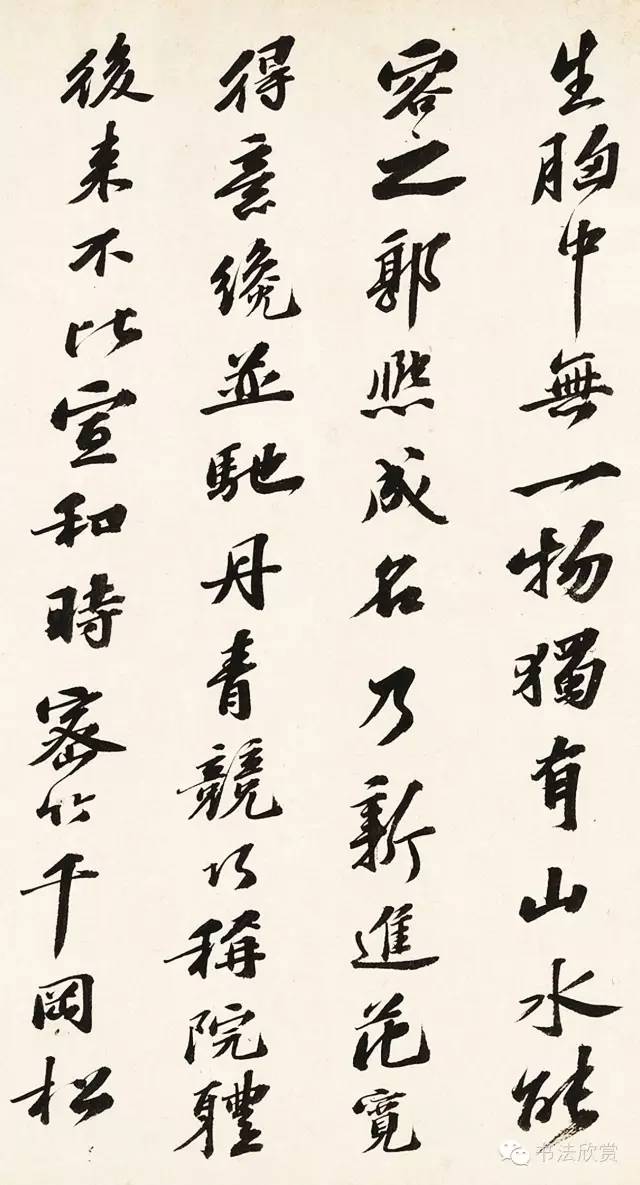 生胸中無一物獨有山水能
容之郭熙成名乃新進花寬
得意纔並馳丹青競巧稱院軆
後来不比宣和時密竹千岡松
书法欣赏